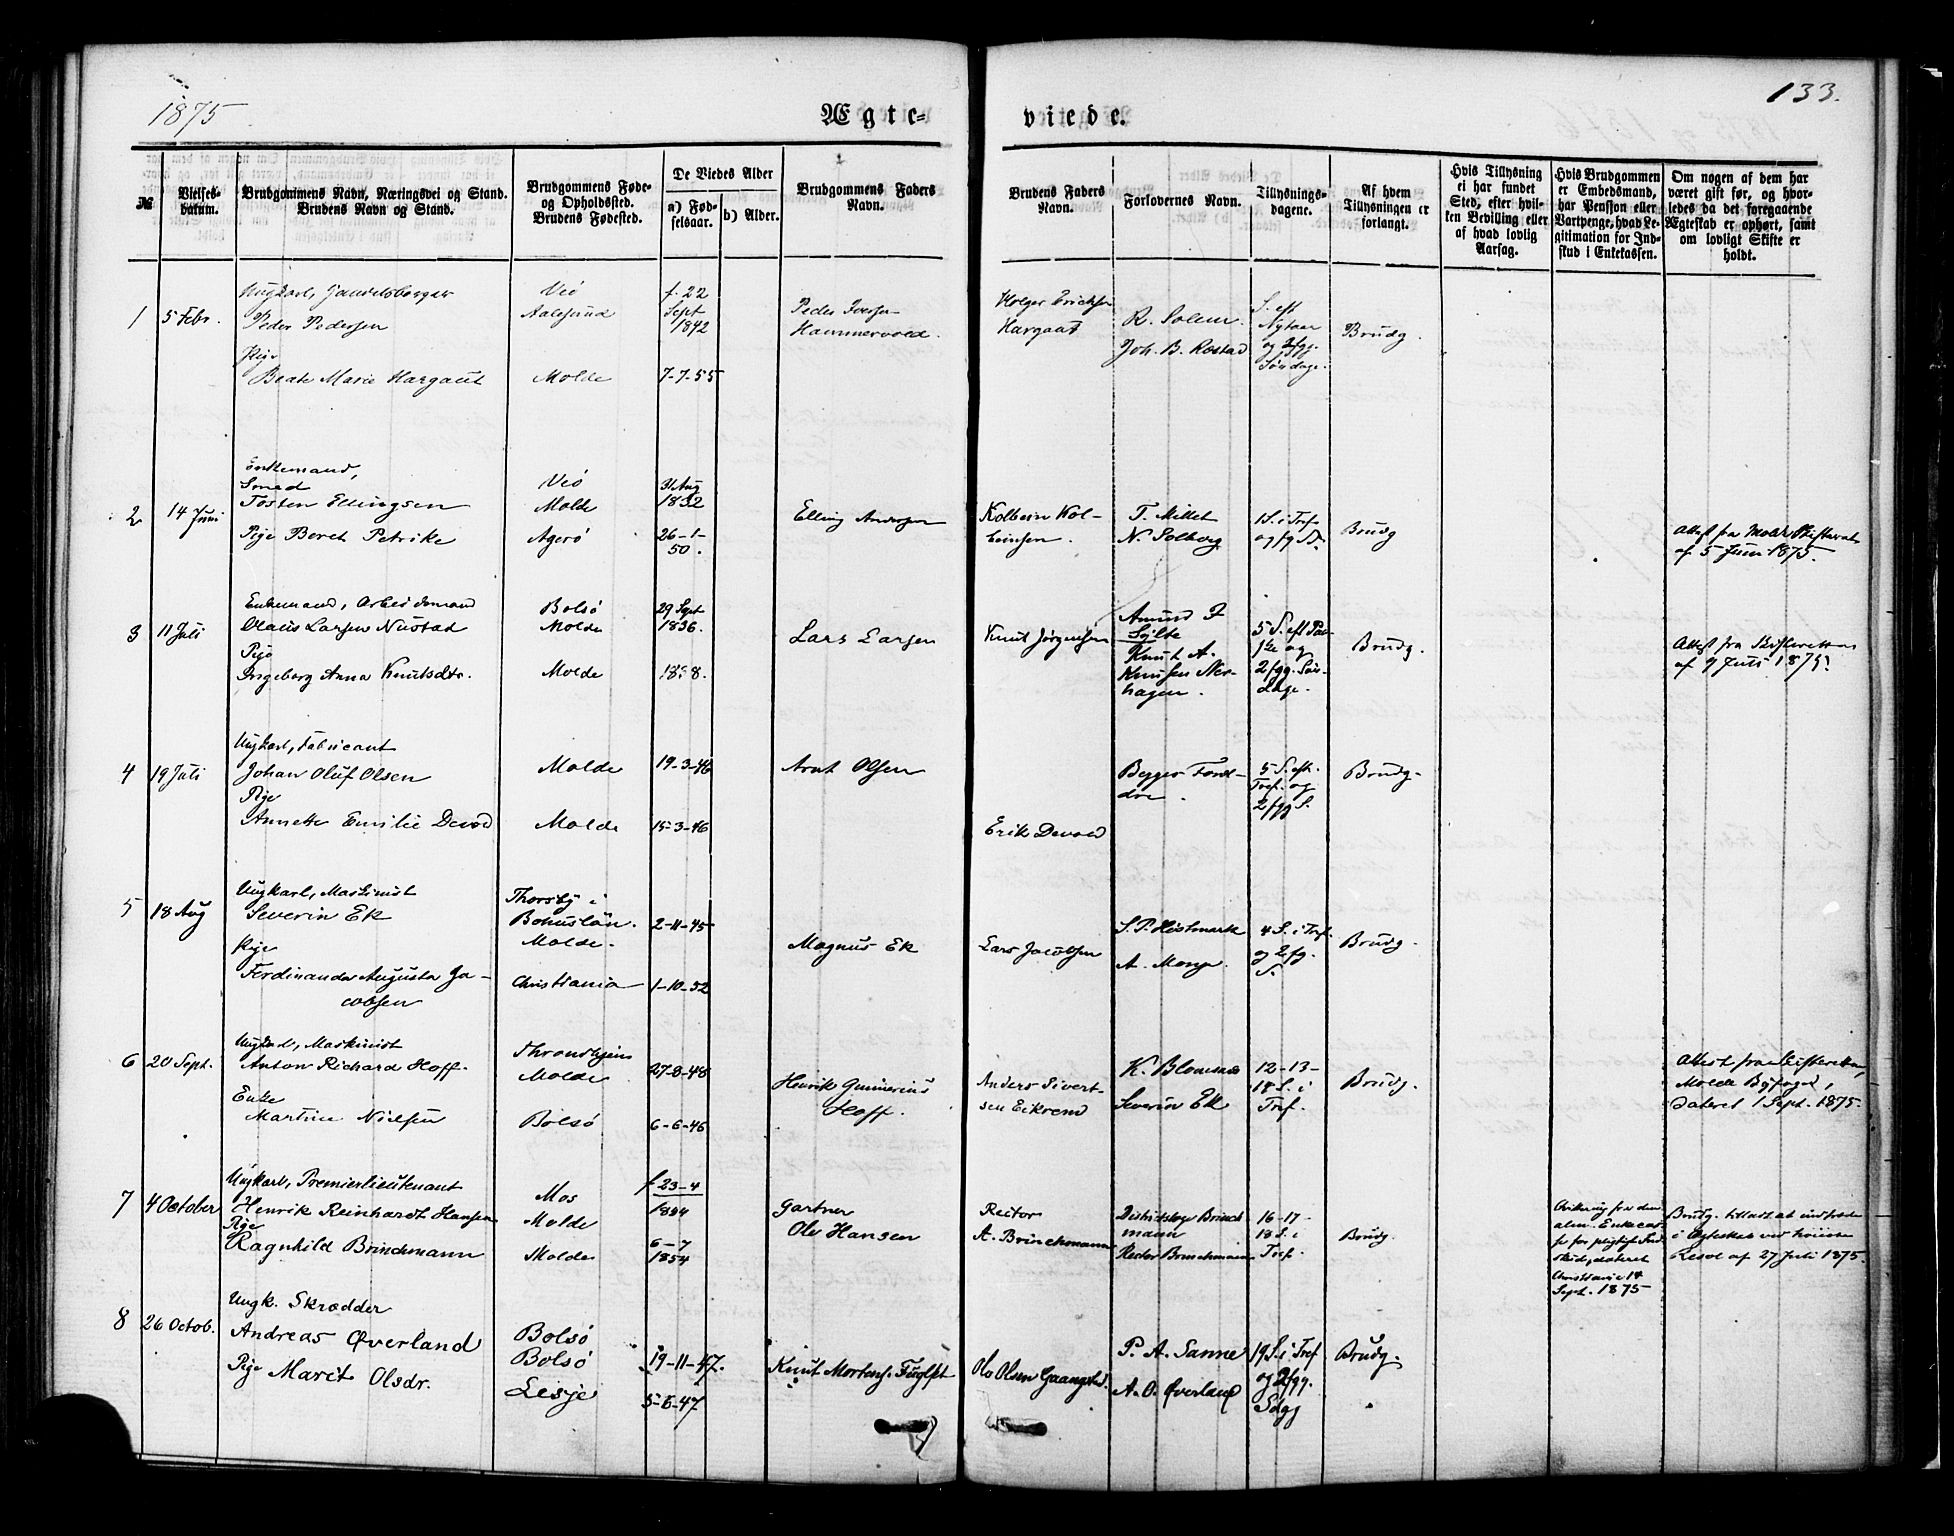 1875
133.
Ægte=
viede.
№
Vielses-
datum.
Brudgommens Navn, Næringsvei og Stand.
Brudens Navn og Stand.
Brudgommens Føde-
og Opholdssted.
Brudens Fødested.
De Viedes Alder
a) Fød-
selsaar.
b) Alder.
Brudgommens Faders
Navn.
Brudens Faders
Navn.
Forlovernes Navn.
Tillysnings-
dagene.
Af hvem
Tillysningen er
forlangt.
Hvis Tillysning
ei har fundet
Sted, efter hvil-
ken Bevilling eller
af hvad lovlig
Aarsag.
Hvis Brudgommen
er Embedsmand,
har Pension eller
Vartpenge, hvad Le-
gitimation for Ind-
skud i Enkekassen.
Om nogen af dem har
været gift før, og hvor-
ledes da det foregaaende
Ægteskab er ophørt, samt
om lovligt Skifte er
holdt.
1
5 Febr.
Ungkarl,
Peder Pedersen
Pige
Beate Marie Hargaut
Veö
Aalesund
Molde
f. 22
Sept
1842
7-7-55
Peder Iversen
Hammervold.
Holger Ericksen
Hargaut
R. Solem.
Joh. B. Røstad
S. eft
Nytaar
og 2 fgg.
Søndage.
Brudg.
2
14 Juni
Enkemand,
Smed
Tosten Ellingsen
Pige Beret Petrike
Veö
Molde
Agerö
31 Aug
1832
26-1-
50.
Elling Andersen
Kolbein Kol-
beinsen.
T. Millet
N. Solborg
1 S. i Tref
og fg S.
Brudg
Attest fra Molde Skifteret
af 5 Juni 1875.
3
11 Juli
Enkemand, Arbeidsmand
Olaus Larsen Nustad
Pige
Ingeborg Anna Knutsdtr.
Bolsö
Molde
Molde
29 Sept
1836.
Lars Larsen
Knut Jörgensen
Amund I
Sylte
Knut A.
Knutsen Ner-
hagen.
5 S. eft Paa-
ske og
2 fgg. Søn-
dage.
Brudg.
Attest fra Skifteretten
af 9 Juli 1875.
4
19 Juli
Ungkarl, Fabricant
Johan Oluf Olsen
Pige
Annette Emilie Devold
Molde
Molde
19-3-46
15-3-46
Arnt Olsen
Erik Devold
Begges Foræl-
dre.
5 S. eft.
Tref. og
2 fgg S.
Brudg.
5
18 Aug
Ungkarl, Maskinist
Severin Ek
Pige
Ferdinanda Augusta Ja-
cobsen
Thorsby i
Bohuslän.
Molde.
Christiania
2-11-45
1-10-52
Magnus Ek
Lars Jacobsen
S. P. Höstmark
A. Monge.
4 S. i Tref.
og 2 fg.
S.
Brudg.
6
20 Sept.
Ungkarl, Maskinist
Anton Richard Hoff.
Enke
Martine Nielsen
Throndhjem
Molde
Bolsö
27-8-48
6-6-46
Henrik Gunnerius
Hoff.
Anders Sivert-
sen Eikrem
K. Blomsnæs
Severin Ek
12-13-
18 S. i
Tref.
Brudg.
Attest fra Skifteretten,
Molde Byfoged,
dateret 1 Sept. 1875.
7
4 October
Ungkarl, Premierlieutenant
Henrik Reinhardt Hansen
Pige
Ragnhild Brinchmann
Mos
Molde
Molde
f 23-4
1844
6-7
1854
Gartner
Ole Hansen
Rector
A. Brinchmann
Distriktslæge Brinch
mann
Rector Brinchmann
16-17-
18 S. i
Tref.
Brudg.
Qvitering fra den
alm. Enkecas-
se for pligtigt Ind-
skud, dateret
Christiania 14
Sept. 1875
Brudg. tilladt at indtræde
i Ægteskab ved
Resol af 27 Juli 1875.
8
26 Octob.
Ungk. Skrædder
Andreas Øverland
Pige Marit Olsdr.
Bolsö
Bolsö
Lesje
19-11-47.
5-6-47
Knut Mortens. Fuglset
Ole Olsen Gaangstad.
P. A. Sanne
A. O. Øverland
19 S. i Tref
og 2 fgg.
Sdgg
Brudg.